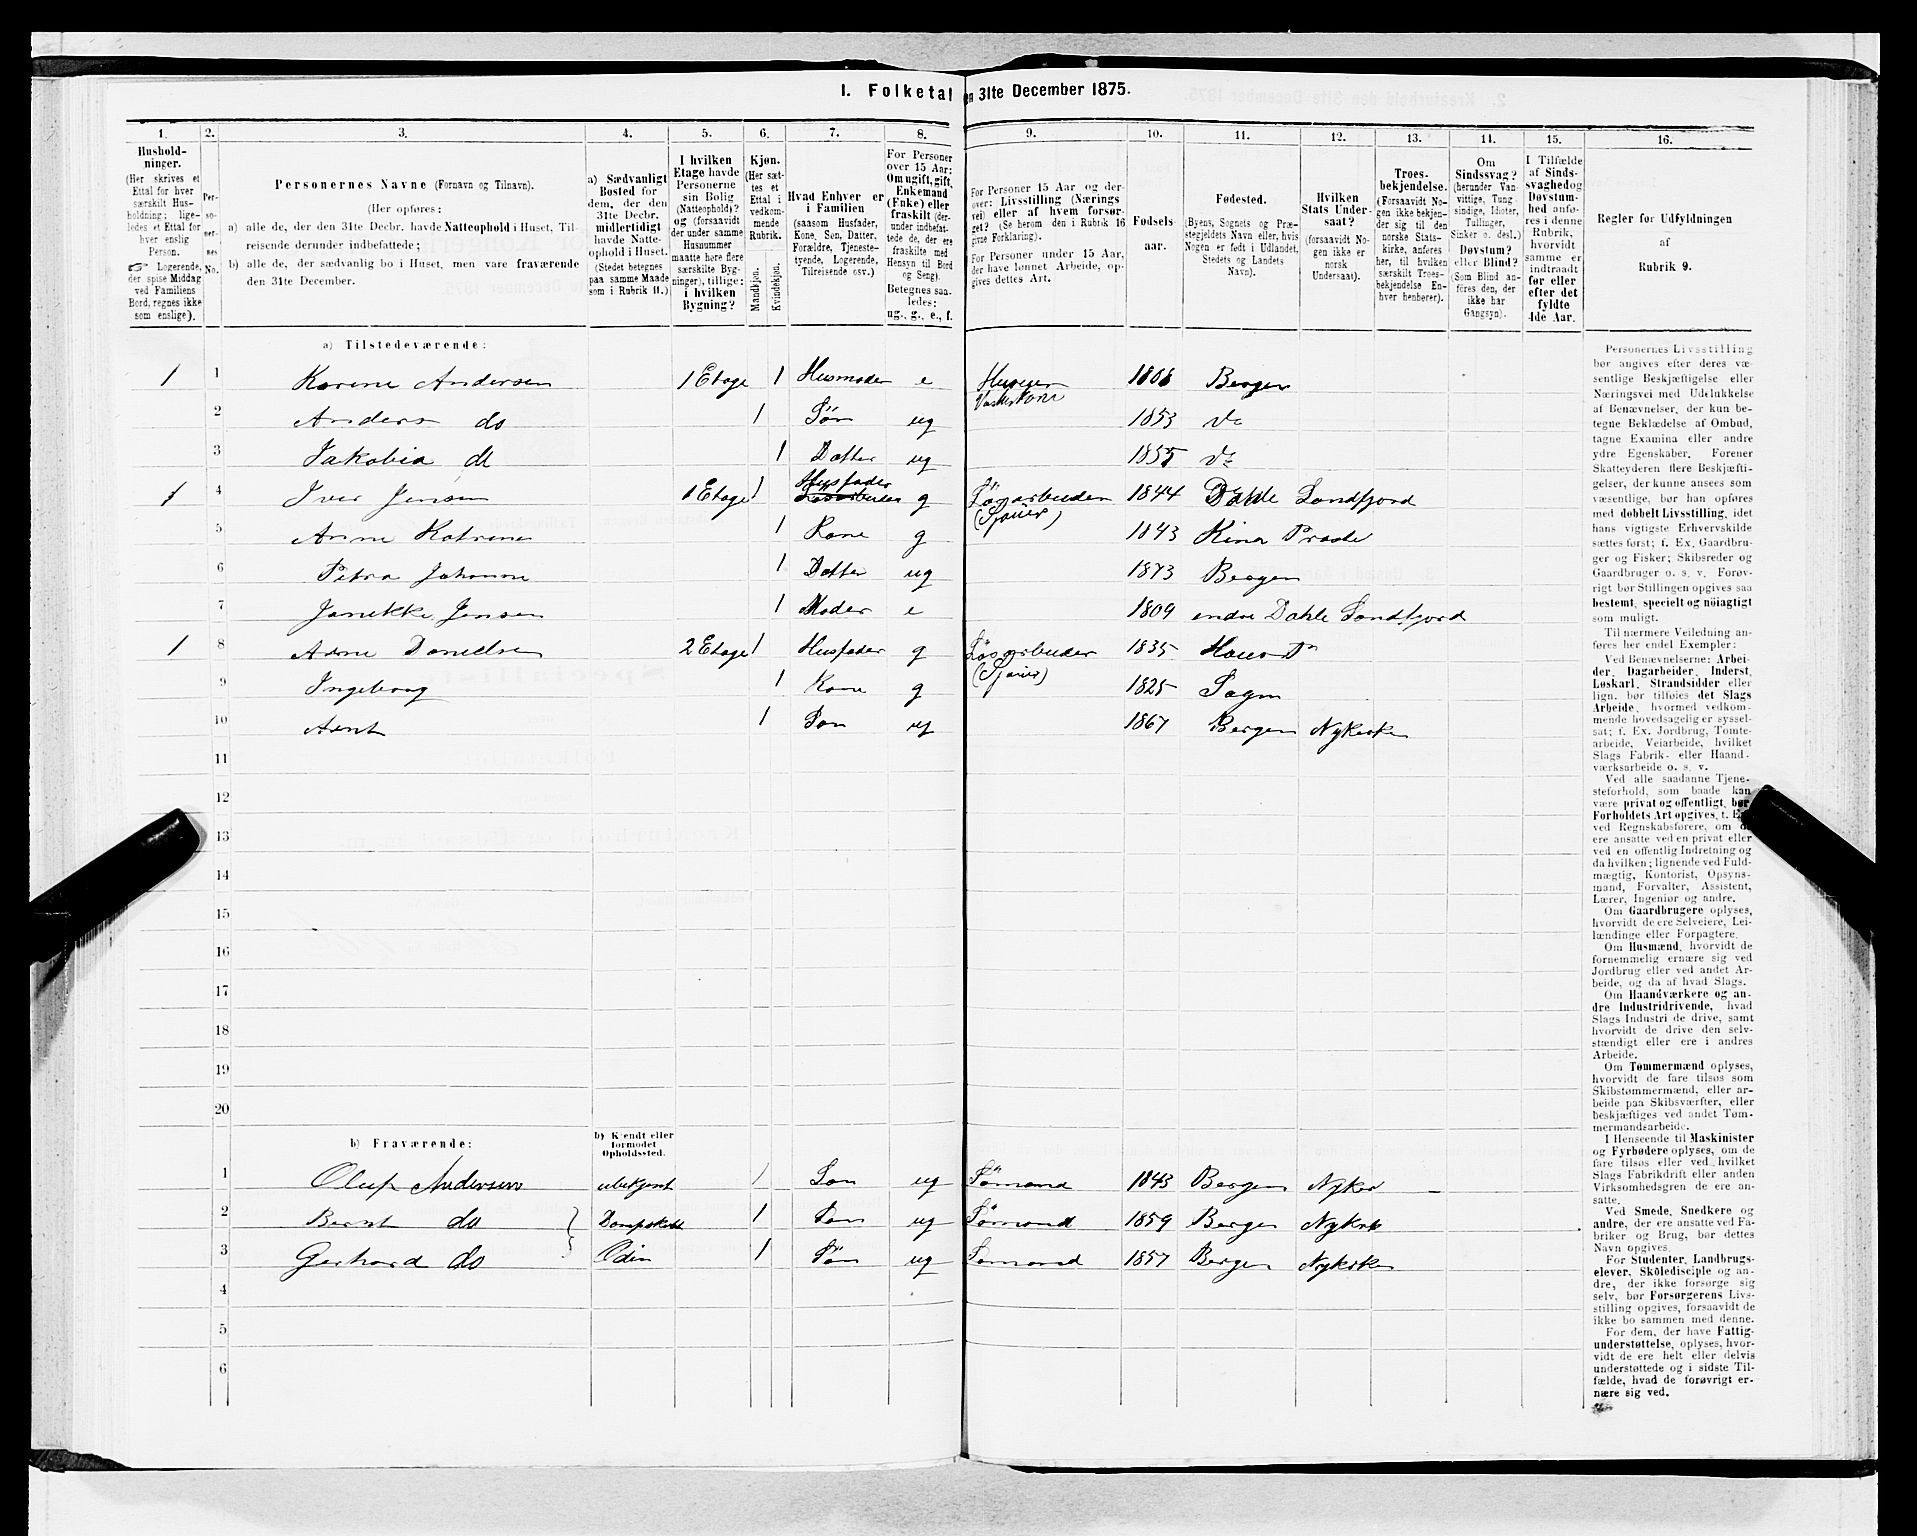 I. Folketal en 31te December 1875.
1. 2. 3. 4. 5. 6. 7. 8. 9. 10. 11. 12. 13. 14. 15. 16.
Hushold-
ninger.
(Her skrives et
Ettal for hver
særskilt Hus-
holdning; lige-
ledes et Ettal for
hver enslig
Person.
☞ Logerende,
der spise Middag
ved Familiens
Bord, regnes ikke
som enslige).
Per-
so-
ner-
nes
No.
Personernes Navne (Fornavn og Tilnavn).
(Her opføres:
a) alle de, der den 31te Decbr. havde Natteophold i Huset, Til-
reisende derunder indbefattede;
b) alle de, der sædvanlig bo i Huset, men vare fraværende
den 31te December.
a) Sædvanligt
Bosted for
dem, der den
31te Decbr.
midlertidigt
havde Natte-
ophold i Huset.
(Stedet betegnes
paa samme Maade
som i Rubrik 11.)
I hvilken
Etage havde
Personerne
sin Bolig
(Natteophold)?
og (forsaavidt
der under samme
Husnummer
maatte høre flere
særskilte Byg-
ninger), tillige:
i hvilken
Bygning?
Kjøn.
(Her sæt-
tes et
Ettal i
vedkom-
mende
Rubrik.
Mandkjøn.
Kvindekjøn.
Hvad Enhver er
i Familien
(saasom Husfader,
Kone, Søn, Datter,
Forældre, Tjeneste-
tyende, Logerende,
Tilreisende osv.)
For Personer
over 15 Aar:
Om ugift, gift,
Enkemand
(Enke) eller
fraskilt (der-
under indbefat-
tede de, der ere
fraskilte med
Hensyn til Bord
og Seng).
Betegnes saa-
ledes:
ug., g., e., f.
For Personer 15 Aar og der-
over: Livsstilling (Nærings
vei) eller af hvem forsør-
get? (Se herom den i Rubrik 16
givne Forklaring).
For Personer under 15 Aar,
der have lønnet Arbeide, op-
gives dettes Art.
Fødsels-
aar.
Fødested.
(Byens, Sognets og Præ-
stegjeldets Navn eller, hvis
Nogen er født i Udlandet,
Stedets og Landets
Navn).
Hvilken
Stats Under-
saat?
(forsaavidt No-
gen ikke er
norsk
Undersaat).
Troes-
bekjendelse.
(Forsaavidt No-
gen ikke bekjen-
der sig til den
norske Stats-
kirke, anføres
her, til hvilken
særskilt Troes-
bekjendelse En-
hver henhører).
Om
Sindssvag?
(herunder Van-
vittige, Tung-
sindige, Idioter,
Tullinger,
Sinker o. desl.)
Døvstum?
eller Blind?
(Som Blind an-
føres den, der
ikke har
Gangsyn).
I Tilfælde
af Sinds-
svaghed og
Døvstum-
hed anfø-
res i denne
Rubrik,
hvorvidt
samme er
indtraadt
før eller
efter det
fyldte
4de Aar.
Regler for Udfyldningen
af
Rubrik 9.
a) Tilstedeværende:
1 1 Karine Andersen 1 Etage 1 Husmoder e 1808 Bergen
2 Anders do 1 Søn ug 1853 do
3 Jakobia do 1 Datter ug 1855 do
1 4 Iver Jensen 1 Etage 1 Husfader g Løsarbeider (Sjouer) 1844 Dahle Sondfjord
5 Anne Katrine 1 Kone g 1843 Kinn Præste
6 Petra Johanne 1 Datter ug 1873 Bergen
7 Janikke Jensen 1 Moder e 1809 Dahle Sondfjord
1 8 Arne Danielsen 2 Etage 1 Husfader g Løsarbeider (Sjouer) 1835
9 Ingeborg 1 Kone g 1825 Sogn
10 Arnt 1 Søn ug 1867 Bergen Nykirke
11
12
13
14
15
16
17
18
19
20
b) Fraværende:
b) Kjendt eller
formodet
Opholdssted.
1 Oluf Andersen ubekjent 1 Søn ug Sømand 1843 Bergen Nykir
2 Bernt do Dampskib 1 Søn ug Sømand 1859 Bergen Nykirk
3 Gerhard do Odin 1 Søn ug Sømand 1857 Bergen Nykirke
4
5
6
Personernes Livsstilling
bør angives efter deres væ-
sentlige Beskjæftigelse eller
Næringsvei med Udelukkelse
af Benævnelser, der kun be-
tegne Beklædelse af Ombud,
tagne Examina eller andre
ydre Egenskaber. Forener
Skatteyderen flere Beskjæfti-
gelser, der kunne ansees som
væsentlige, bør han opføres
med dobbelt Livsstilling, idet
hans vigtigste Erhvervskilde
sættes først; f. Ex. Gaardbru-
ger og Fisker; Skibsreder og
Gaardbruger o. s. v. Forøv-
rigt bør Stillingen opgives saa
bestemt, specielt og nöiagtigt
som muligt.
Til nærmere Veiledning an-
føres her endel Exempler:
Ved Benævnelserne: Arbei-
der, Dagarbeider, Inderst,
Løskarl, Strandsidder eller
lign. bør tilføies det Slags
Arbeide, hvormed vedkom-
mende hovedsagelig er syssel-
sat; f. Ex. Jordbrug, Tomte-
arbeide, Veiarbeide, hvilket
Slags Fabrik- eller Haand-
værksarbeide o. s. v.
Ved alle saadanne Tjene-
steforhold, som baade kan
være privat og offentligt, bør
Forholdets Art opgives, t. E
ved Regnskabsførere, om
ere ansatte ved en privat eller
ved en offentlig Indretning og
da hvilken; lignende ved Fuld-
mægtig, Kontorist, Opsyns-
mand, Forvalter, Assistent,
Lærer, Ingeniør og andre.
Om Gaardbrugere oplyses,
hvorvidt de ere Selveiere, Lei-
lændinge eller Forpagtere.
Om Husmænd, hvorvidt de
fornemmelig ernære sig ved
Jordbrug eller ved andet Ar-
beide, og da af hvad Slags.
Om Haandværkere og an-
dre Industridrivende, hvad
Slags Industri de drive, samt
hvorvidt de drive den selv-
stændigt eller ere i andres
Arbeide.
Om Tømmermænd oplyses,
hvorvidt de fare tilsøs som
Skibstømmermænd, eller ar-
beide paa Skibsværfter, eller
beskjæftiges ved andet Tøm-
mermandsarbeide.
I Henseende til Maskinister
og Fyrbødere oplyses, om de
fare tilsøs eller ved hvilket
Slags Fabrikdrift eller anden
Virksomhedsgren de ere an-
satte.
Ved Smede, Snedkere og
andre, der ere ansatte ved Fa-
briker og Brug, bør dettes
Navn opgives.
For Studenter, Landbrugs-
elever, Skoledisciple og an-
dre, der ikke forsørge sig
selv, bør Forsørgerens Livs-
stilling opgives, forsaavidt de
ikke bo sammen med denne.
For dem, der have Fattig-
understøttelse, oplyses, hvor-
vidt de ere helt eller delvis
understøttede og i sidste Til-
fælde, hvad de forøvrigt er-
nære sig ved.